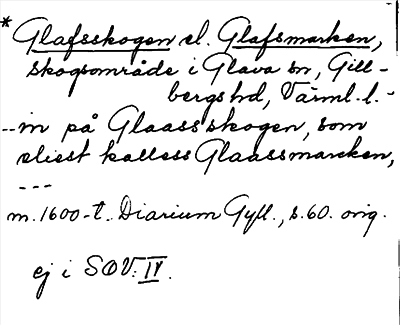 * Glafsskogen el. Glafsmarken,
skogsområde i Glava sn, Gill-
bergs hd, Värml. l.
--- in på Glaassskogen, som
eliest kalless Glaassmarcken,
---
m. 1600-t. Diarium Gyll., s. 60. orig.
ej i SOV: IV.